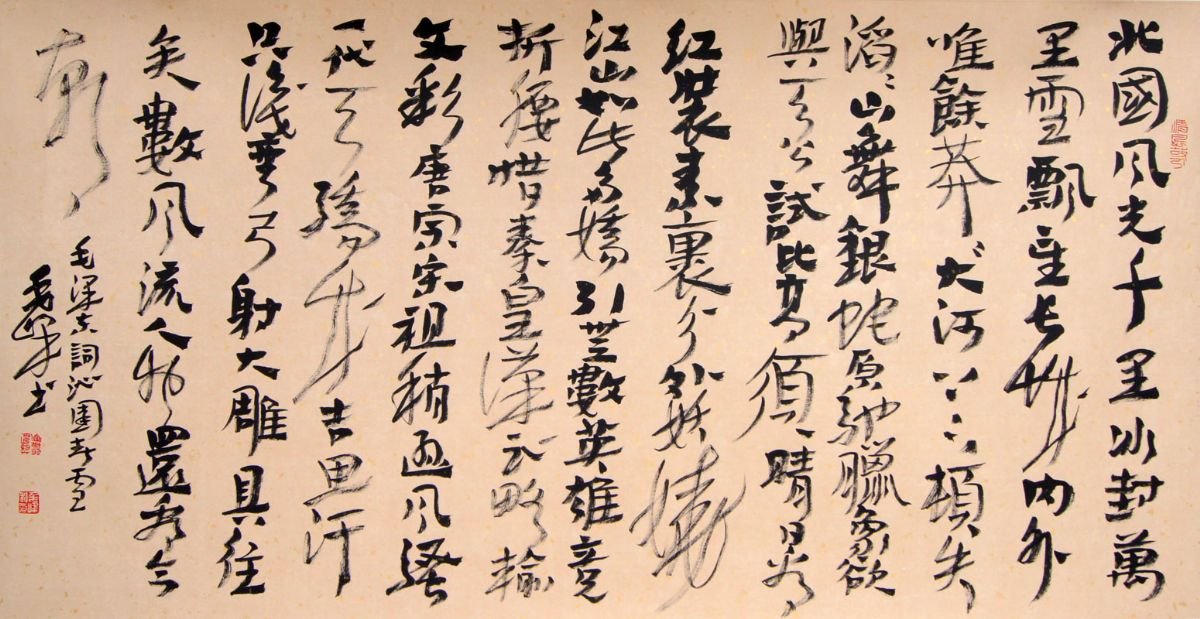 北國风光千里冰封萬
里雪飄望长城内外
唯餘莽大河上下頓失
滔〻山舞銀蛇原馳臘象欲
與天公試比高須晴日看
紅裝素裹分外妖嬈
江山如此多嬌引無數英雄竞
折腰惜秦皇漢武略輸
文彩唐宗宋祖稍遜风騷
一代天驕成吉思汗
只識彎弓射大雕具往
矣數风流人物還看今
朝
毛澤东詞沁園春雪
书